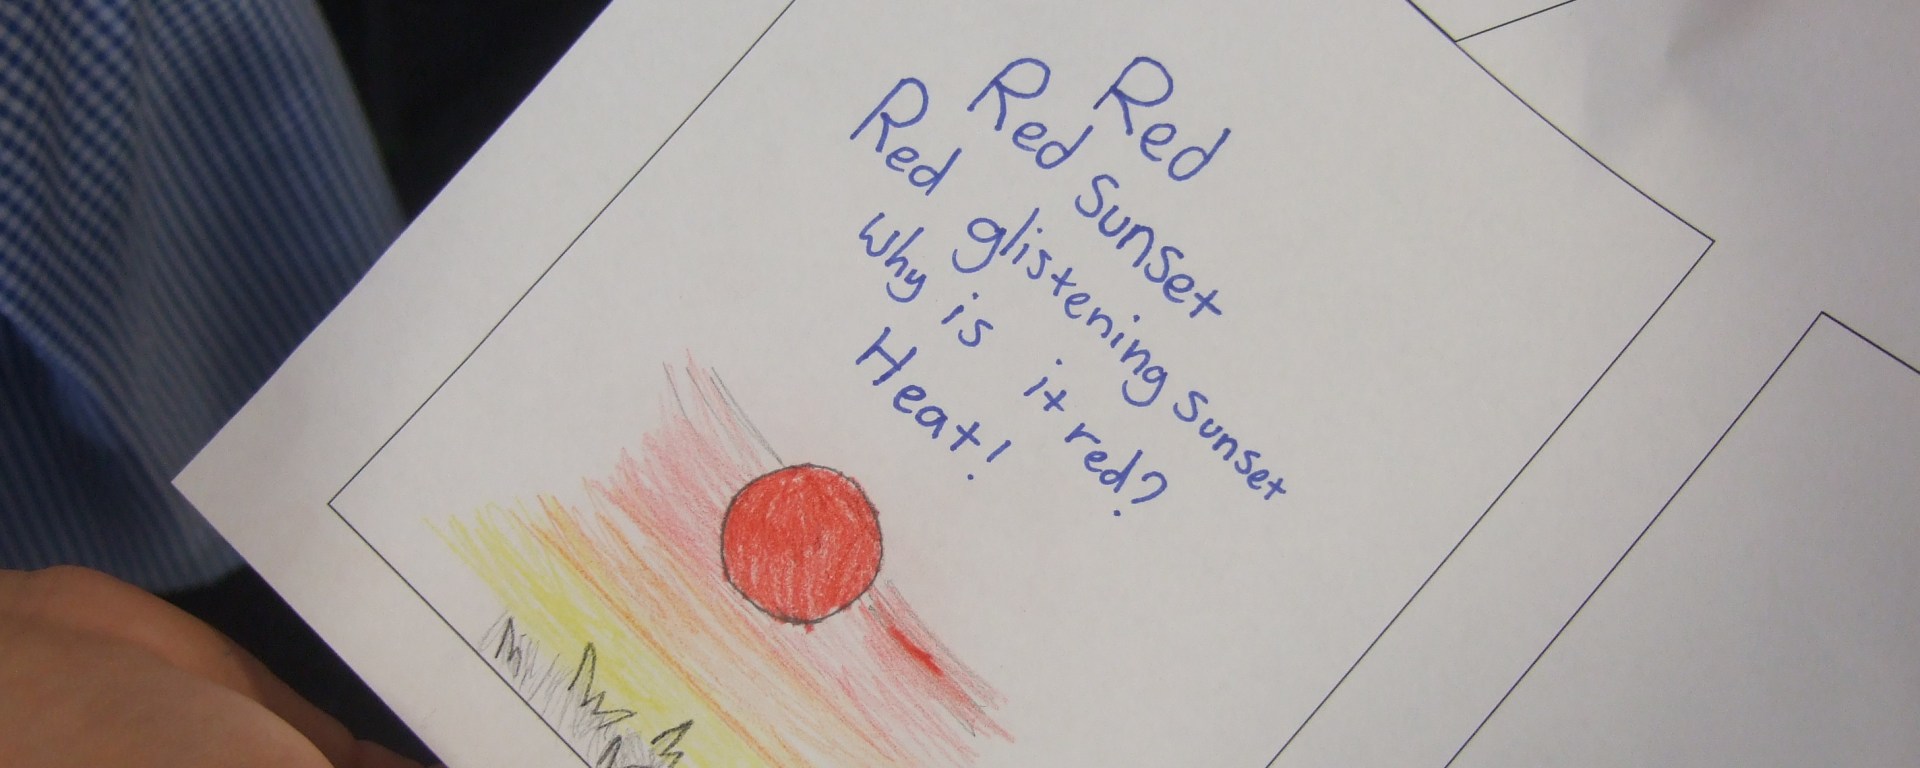 Red
Red Sunset
Red glistening sunset
Why is it red?
Heat!